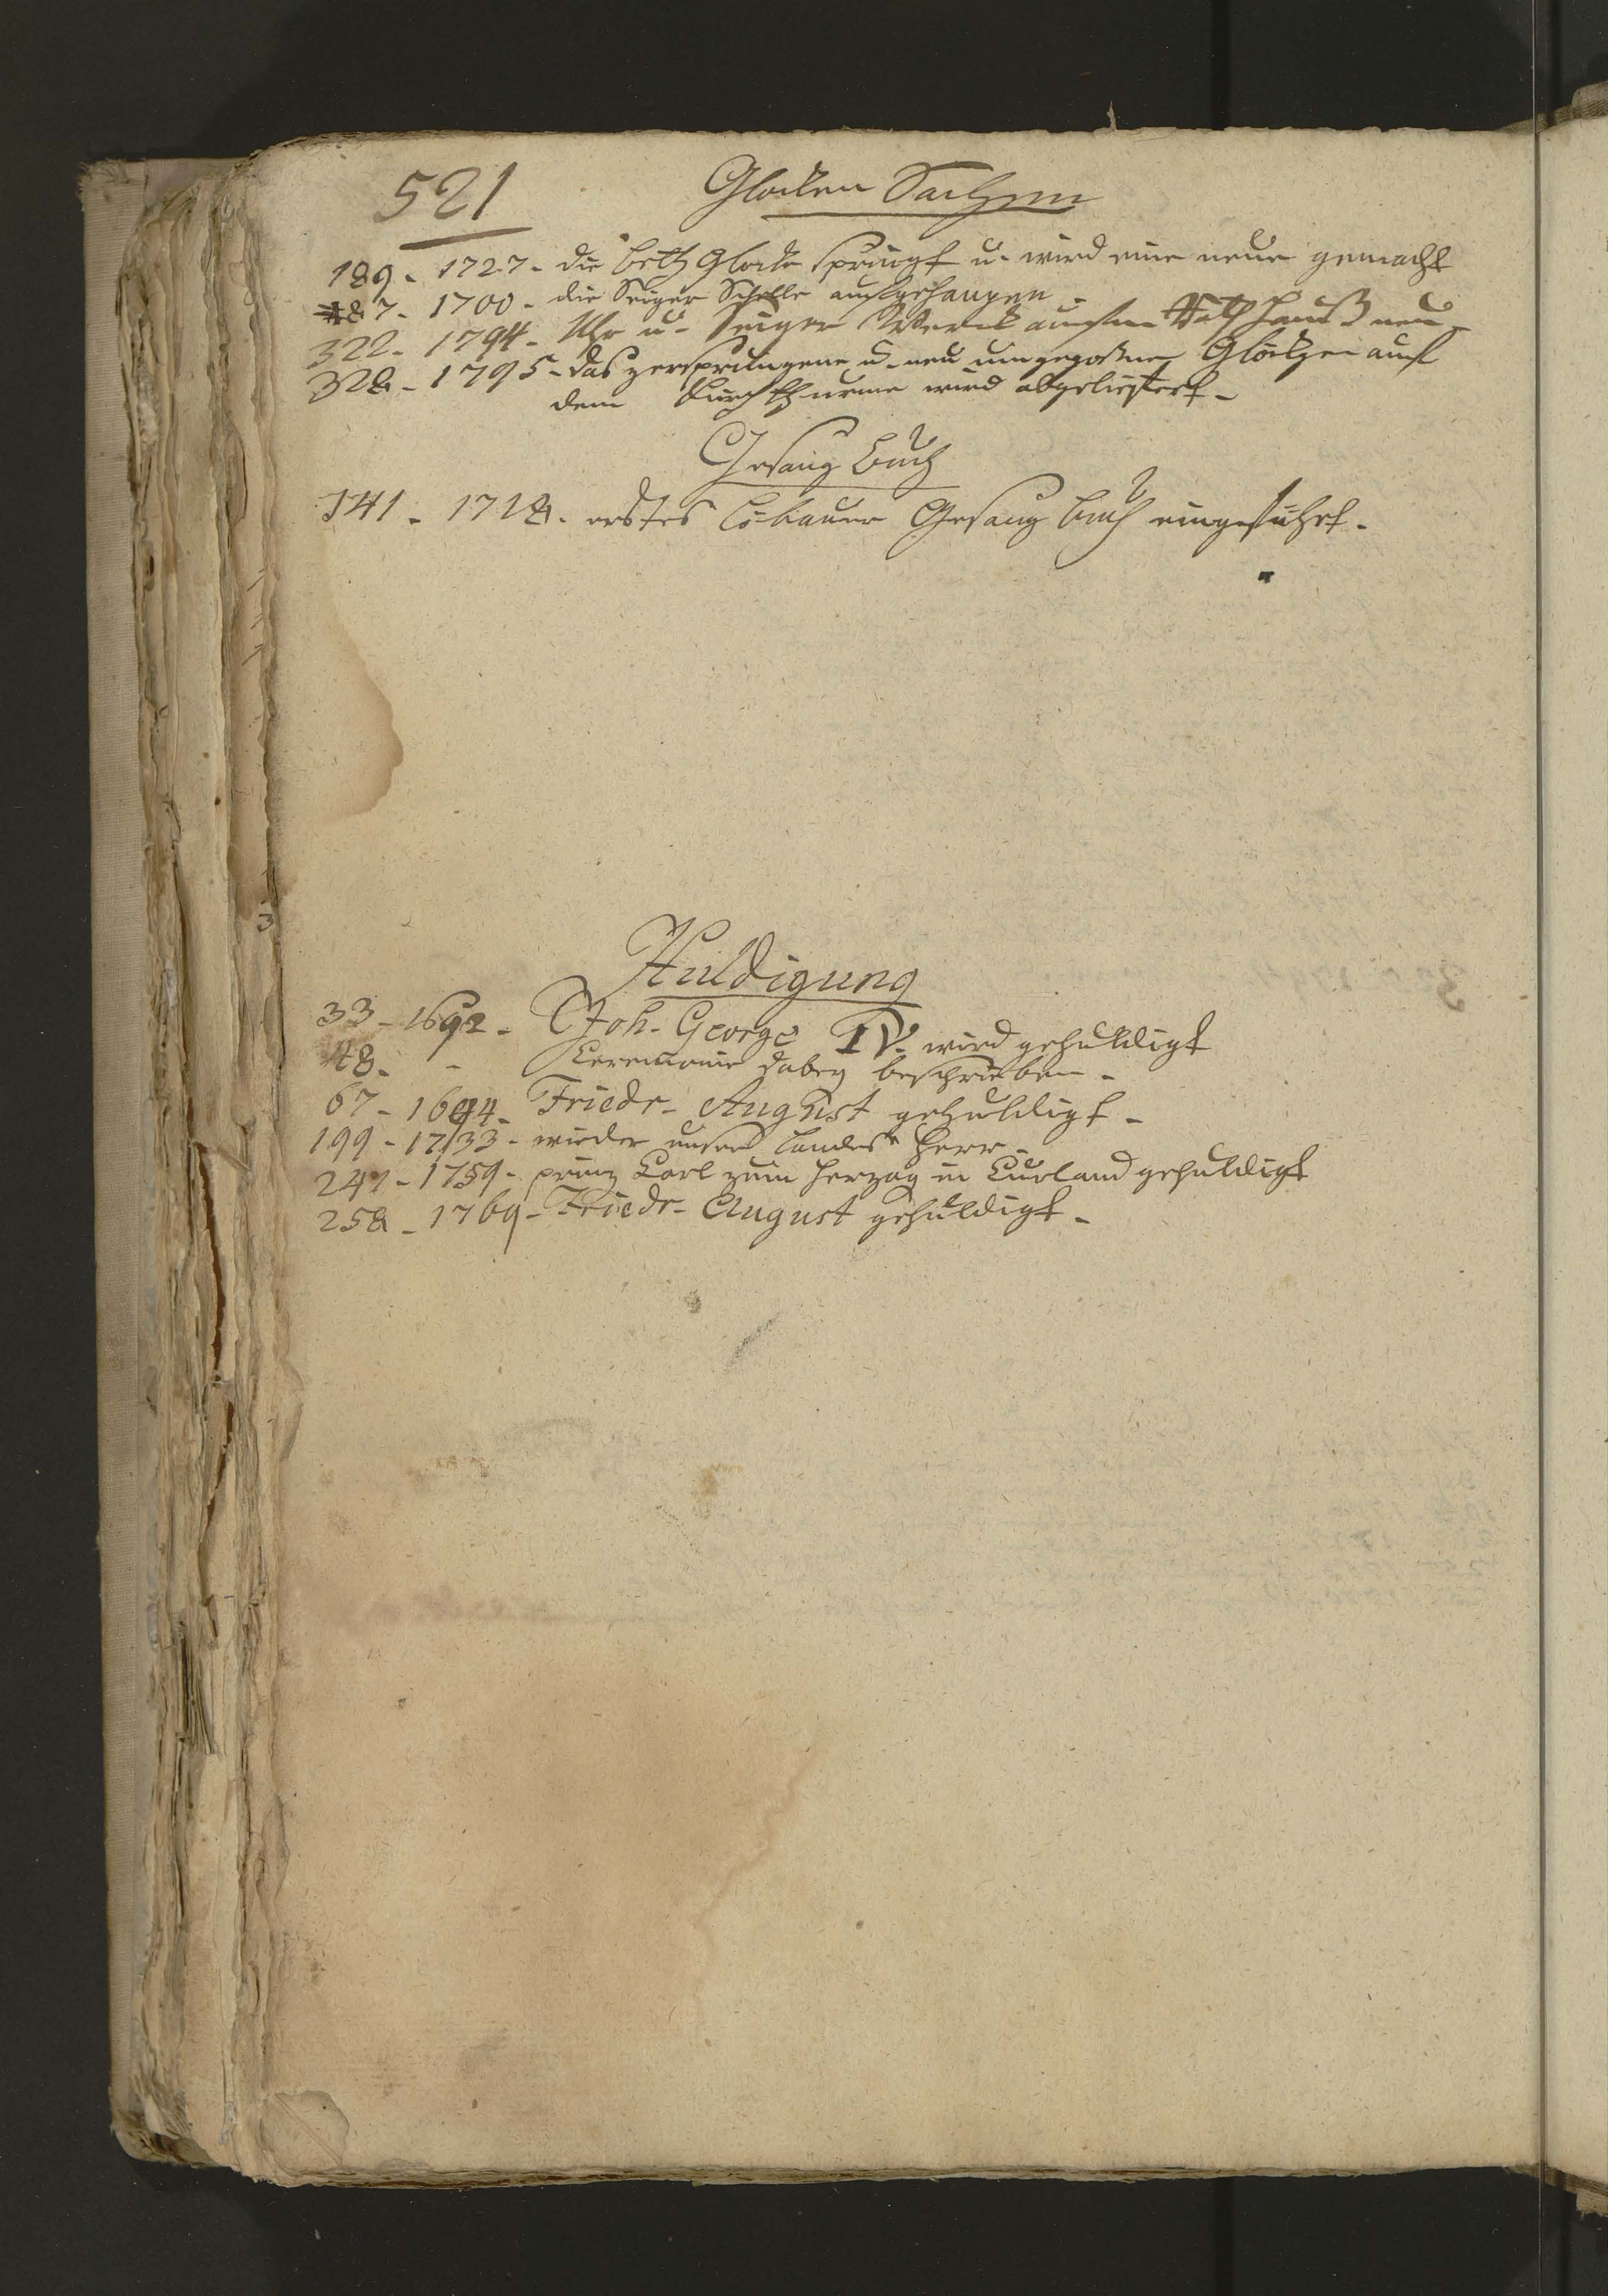 521
Glocken Sachen
189 - 1727 - die Beth Glocke springt u. wird eine neue gemacht
87 - 1700 - die Seiger Schelle aufgehangen -
322 - 1794 - Uhr u. Seiger Werck aufm Rathhauß neu -
328 - 1795 - das zersprungene u. neu umgegoßne Glöckgen auf
dem Kirchthurme wird abgeliefert -
Gesang Buch
141 - 1718 - erstes Löbauer Gesang Buch eingeführt -
Huldigung
33 - 1692 - Joh. George IV. wird gehuldigt
48 - - Ceremonie dabey beschrieben -
67 - 1694 - Friedr. August gehuldigt -
199 - 1733 - wieder unser Landes Herr -
247 - 1759 - prinz Carl zum Herzog in Curland gehuldigt
258 - 1769 - Friedr. August gehuldigt -